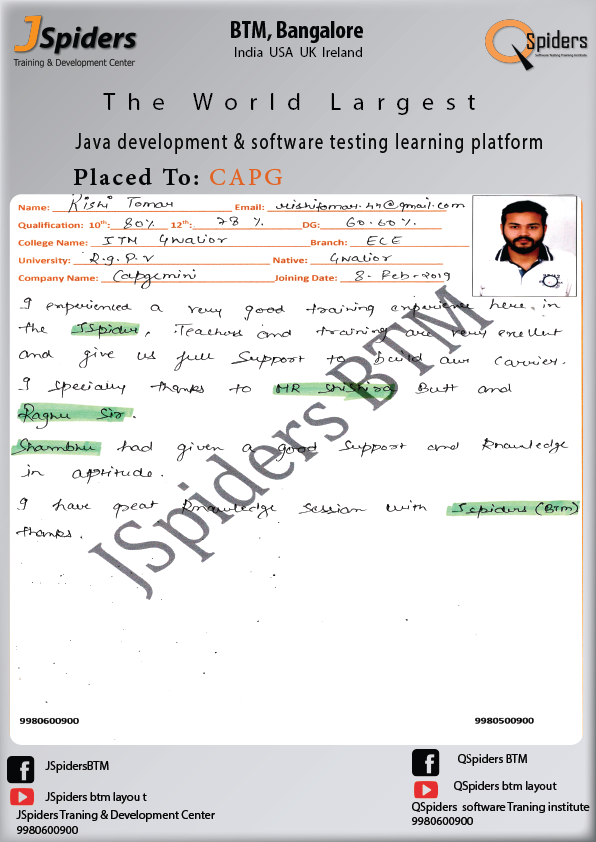 JSpiders
Training & Development Center
BTM, Bangalore
India USA UK Ireland
QSpiders
Software Testing Training Institute
The World Largest
Java development & software testing learning platform
Placed To: CAPG
Name: Rishi Tomar Email: rishitomar.44@gmail.com
Qualification: 10th: 80% 12th: 78 % DG: 60.60%
College Name: ITM Gwalior Branch: ECE
University: R.g.P.V Native: Gwalior
Company Name: Capgemini Joining Date: 8- Feb-2019
I experienced a very good training experience here in
the JSpider, Teachers and training are very excellent
and give us full Support to build our Carrier.
I specially thanks to HR Shishira Butt and
Raghu Sir.
Shambhu had given a good Support and knowledge
in aptitude.
I have great knowledge session with Jspiders (BTM)
thanks.
JSpiders BTM
9980600900 9980500900
JSpidersBTM
JSpiders btm layou t
JSpiders Traning & Development Center
9980600900
QSpiders BTM
QSpiders btm layout
QSpiders software Traning institute
9980600900